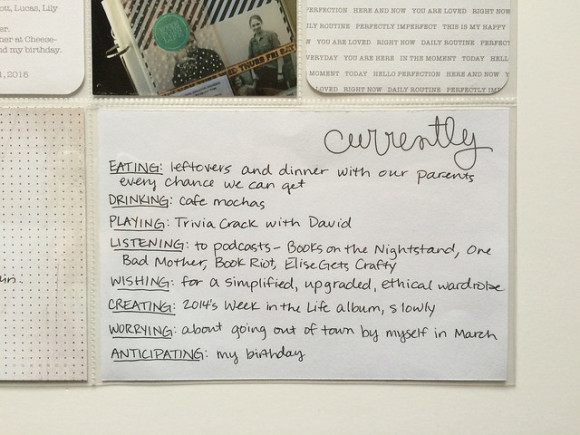 ou, Lucas, Lily
er.
ner at Cheese-
d my birthday.
1, 2015
THURS FRI SAT
PERFECTION HERE AND NOW YOU ARE LOVED RIGHT NOW
ILY ROUTINE PERFECTLY IMPERFECT THIS IS MY HAPPY
W YOU ARE LOVED RIGHT NOW DAILY ROUTINE PERFECT
VERYDAY YOU ARE HERE IN THE MOMENT TODAY HELL
MOMENT TODAY HELLO PERFECTION HERE AND NOW Y
LOVED RIGHT NOW DAILY ROUTINE PERFECTLY IMP
currently
EATING: leftovers and dinner with our parents
every chance we can get
DRINKING: cafe mochas
PLAYING: Trivia Crack with David
LISTENING: to podcasts - Books on the Nightstand, One
Bad Mother, Book Riot, Elise Gets Crafty
WISHING: for a simplified, upgraded, ethical wardrobe
CREATING: 2014's Week in the Life album, slowly
WORRYING: about going out of town by myself in March
ANTICIPATING: my birthday
in.